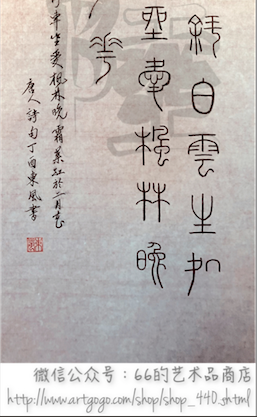 斜白雲生処
坐愛楓林晚
花
車坐愛楓林晚 霜葉紅於二月花
唐人詩句丁酉東風書
微信公众号：66的艺术品商店
http://www.artgogo.com/shop/shop_440.shtml